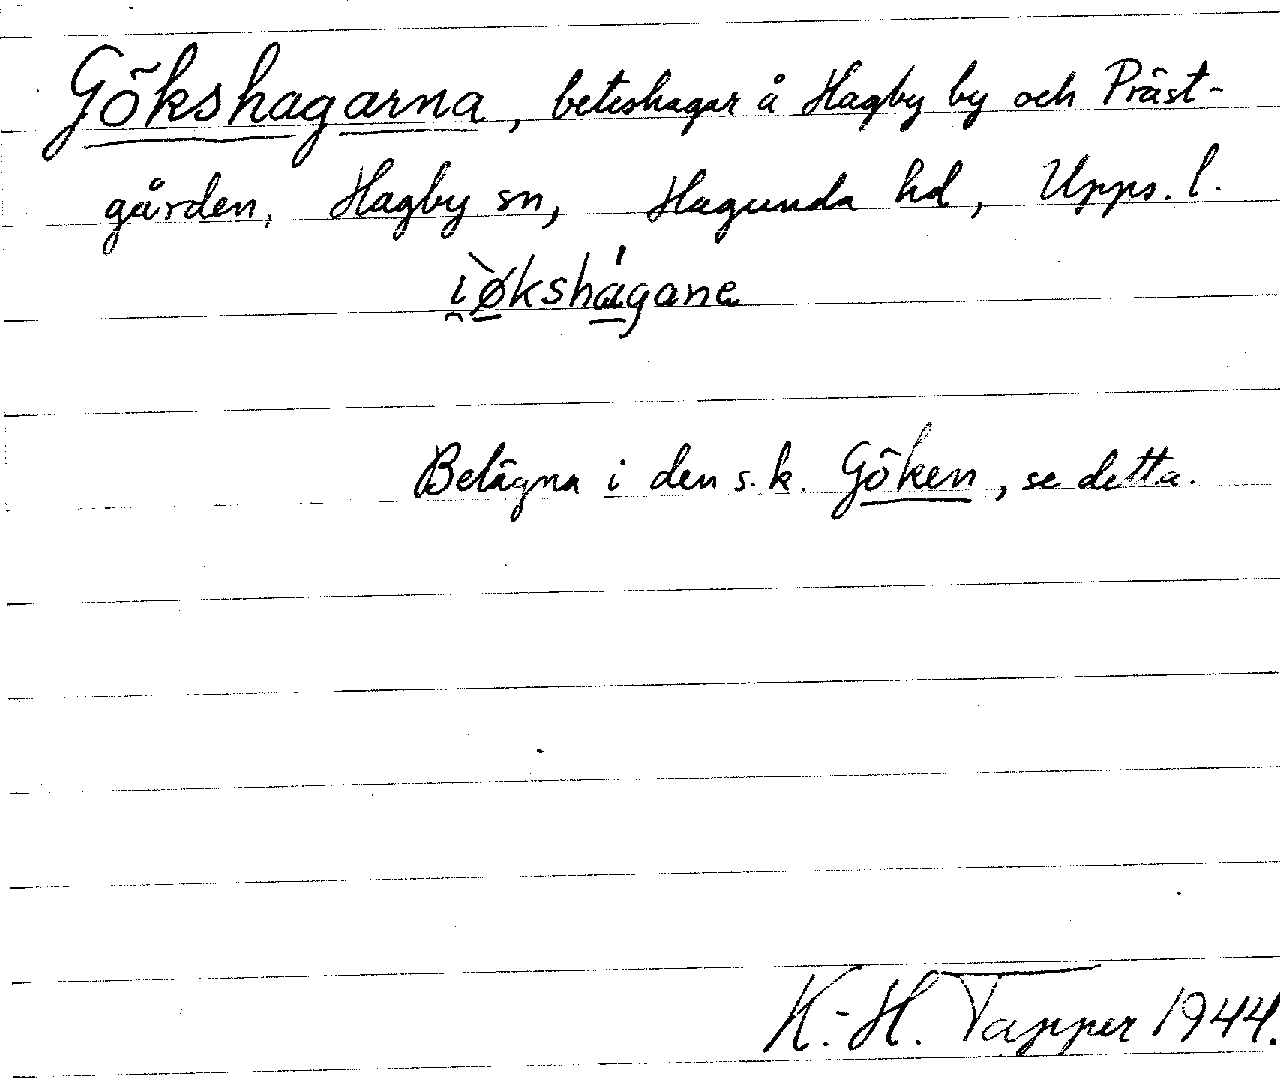 Gökshagarna, beteshagar å Hagby by och Präst-
gården, Hagby sn, Hagunda hd, Upps. l.
i̯ø̀kshágane
Belägna i den s.k. Göken, se detta.
K.-H. Tapper 1944.